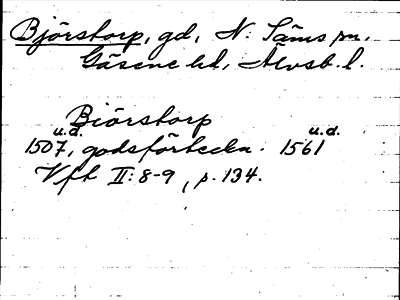 Björstorp, gd, N. Säms sn.
Gäsene hd, Älvsb. l.
Biörstorp
u.d. u.d.
1507, godsförteckn. 1561
Vft II: 8-9, p. 134.